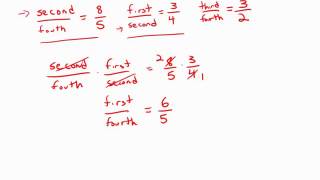 → second/fouth = 8/5 → first/second = 3/4 third/forth = 3/2
second/fouth · first/second = ²8/5 · 3/4 1
first/fourth = 6/5